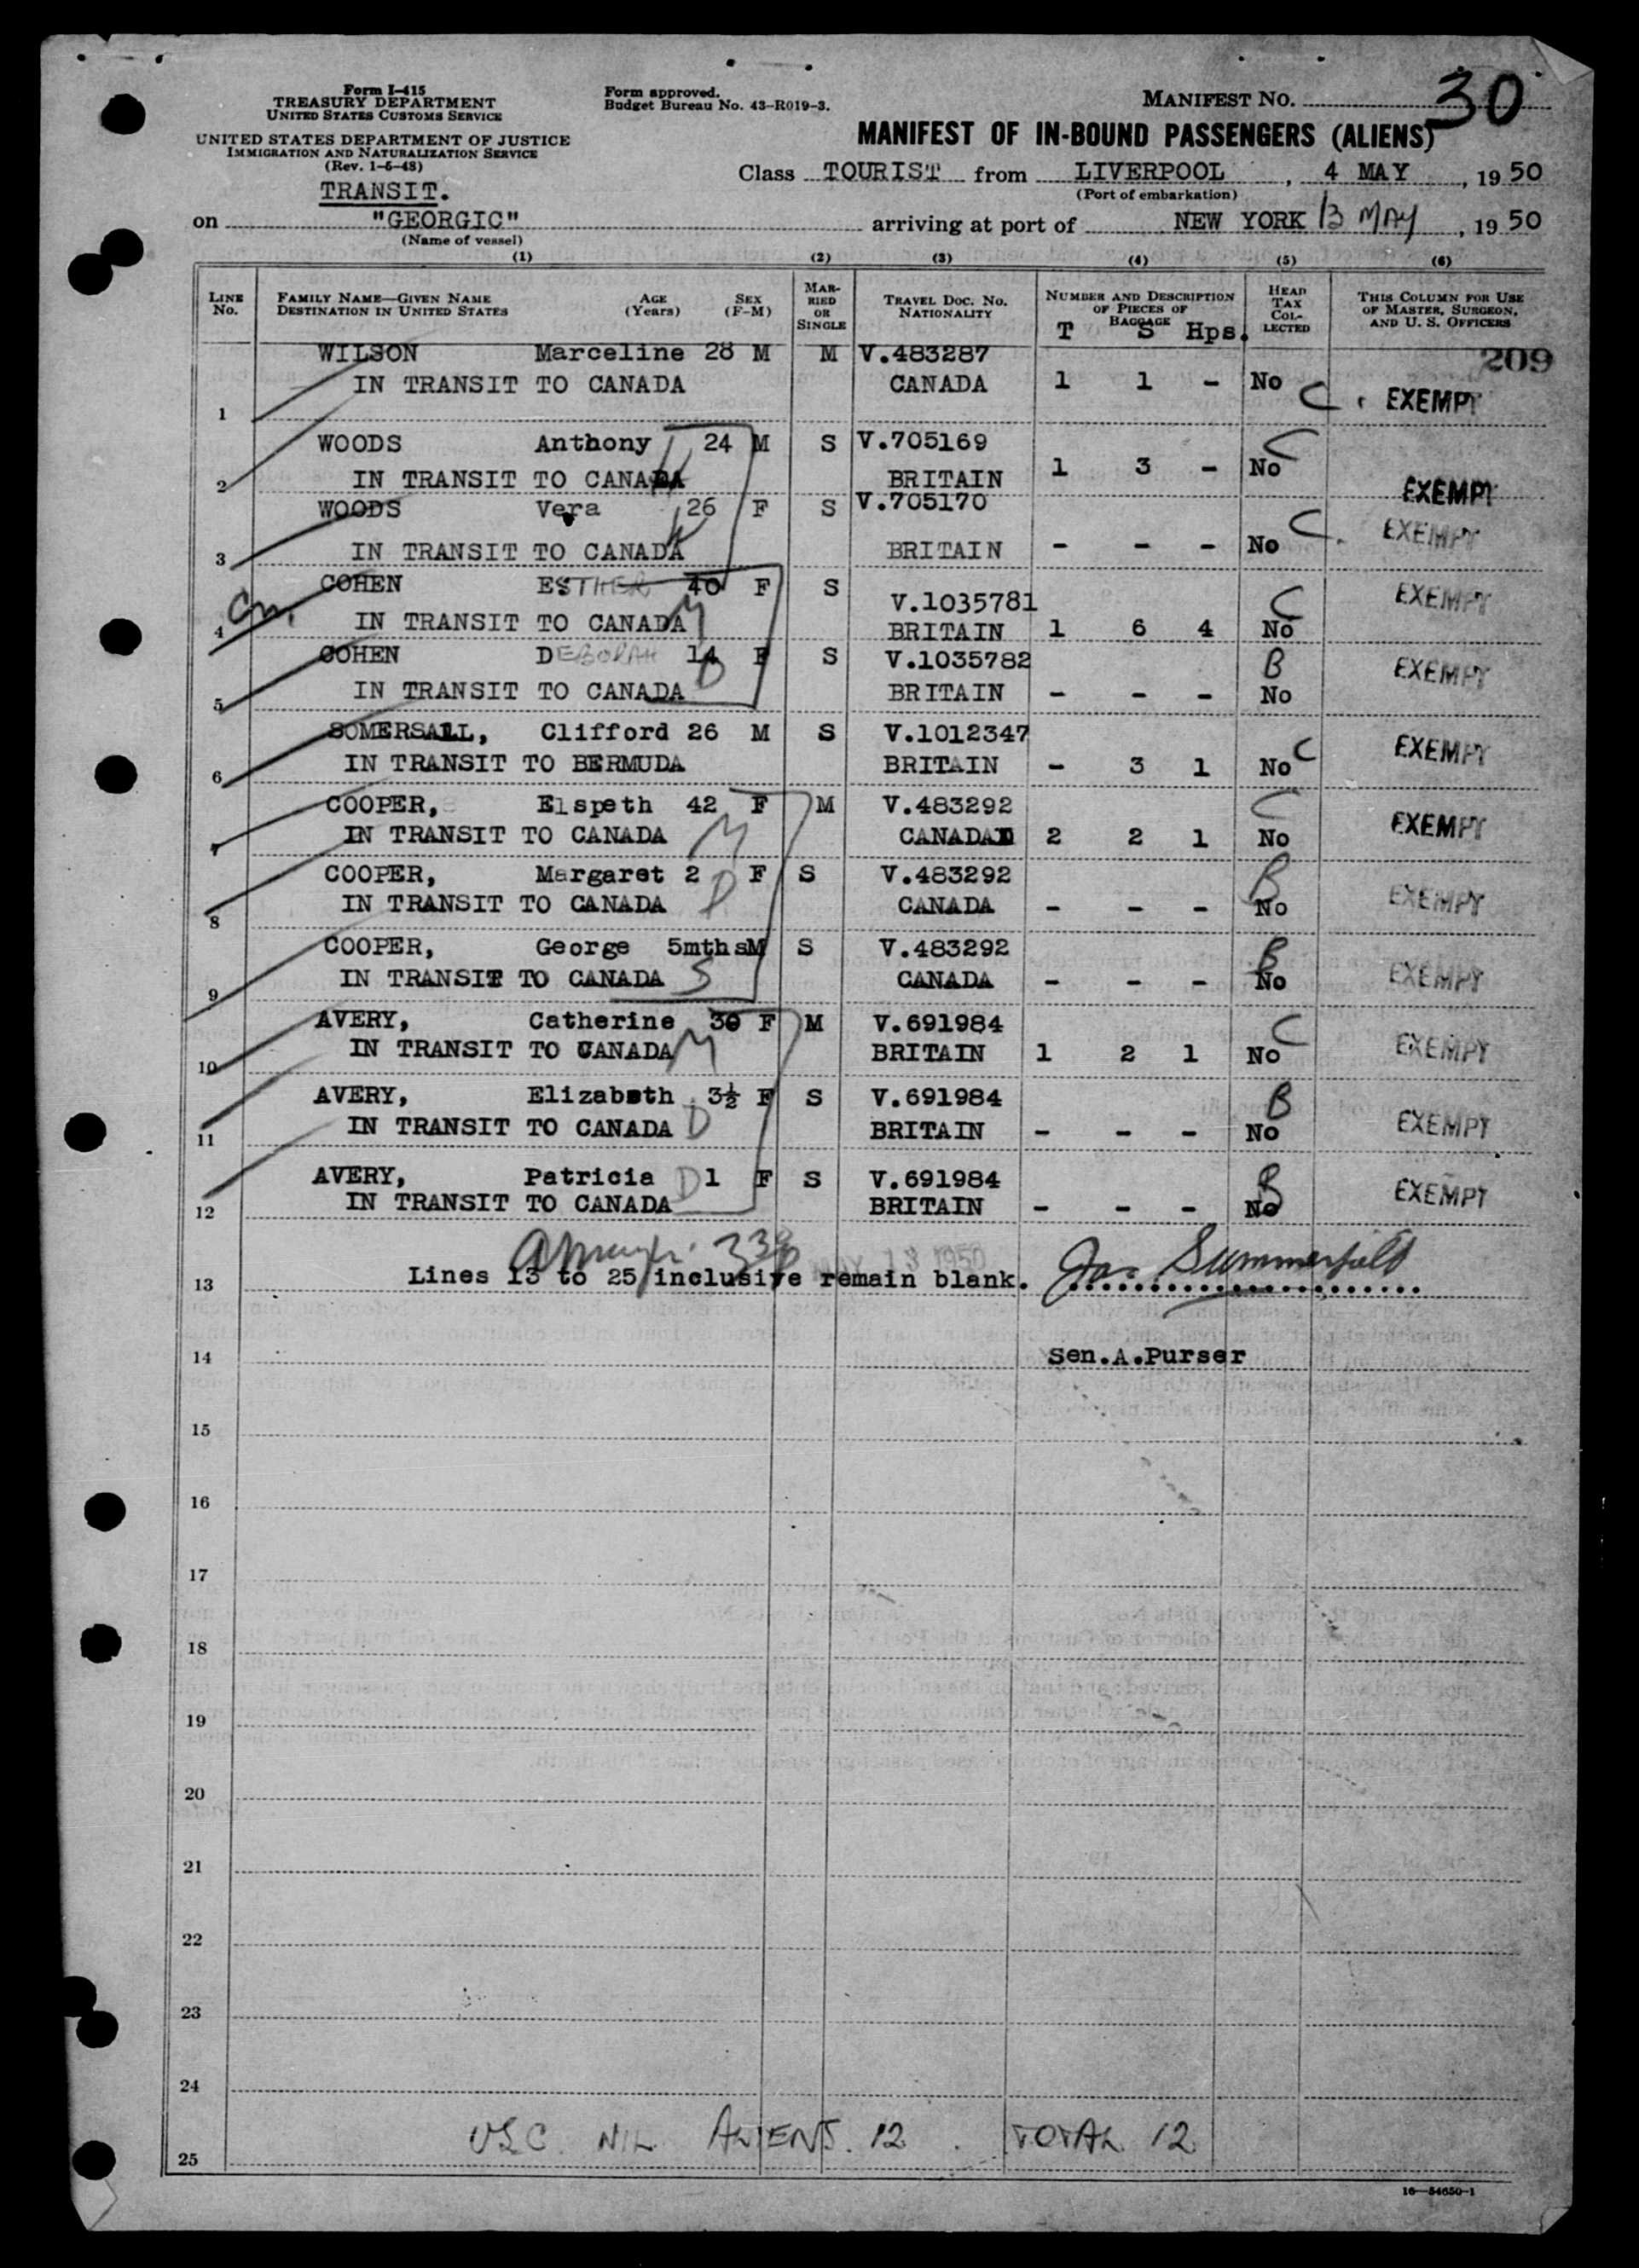 Form I-415
TREASURY DEPARTMENT
UNITED STATES CUSTOMS SERVICE
UNITED STATES DEPARTMENT OF JUSTICE
IMMIGRATION AND NATURALIZATION SERVICE
(Rev. 1-6-48)
TRANSIT.
Form approved.
Budget Bureau No. 43-R019-3.
MANIFEST NO. 30
MANIFEST OF IN-BOUND PASSENGERS (ALIENS)
Class TOURIST from LIVERPOOL, 4 MAY, 1950
(Port of embarkation)
on "GEORGIC" arriving at port of NEW YORK 13 MAY, 1950
(Name of vessel)
(1) (2) (3) (4) (5) (6)
LINE No. FAMILY NAME—GIVEN NAME DESTINATION IN UNITED STATES AGE (Years) SEX (F-M) MARRIED OR SINGLE TRAVEL DOC. NO. NATIONALITY NUMBER AND DESCRIPTION OF PIECES OF BAGGAGE HEAD TAX COLLECTED THIS COLUMN FOR USE OF MASTER, SURGEON, AND U. S. OFFICERS
T S Hps.
209
WILSON Marceline 28 M M V.483287
1 IN TRANSIT TO CANADA CANADA 1 1 - No C EXEMPT
WOODS Anthony 24 M S V.705169 C
2 IN TRANSIT TO CANADA BRITAIN 1 3 - No EXEMPT
WOODS Vera 26 F S V.705170
3 IN TRANSIT TO CANADA BRITAIN - - - No C EXEMPT
COHEN ESTHER 40 F S V.1035781 C EXEMPT
4 IN TRANSIT TO CANADA M BRITAIN 1 6 4 No
COHEN DEBORAH 14 F S V.1035782 B EXEMPT
5 IN TRANSIT TO CANADA D BRITAIN - - - No
SOMERSALL, Clifford 26 M S V.1012347
6 IN TRANSIT TO BERMUDA BRITAIN - 3 1 No C EXEMPT
COOPER, Elspeth 42 F M V.483292 C
7 IN TRANSIT TO CANADA M CANADA 2 2 1 No EXEMPT
COOPER, Margaret 2 F S V.483292 B
8 IN TRANSIT TO CANADA D CANADA - - - No EXEMPT
COOPER, George 5mths M S V.483292 B
9 IN TRANSIT TO CANADA S CANADA - - - No EXEMPT
AVERY, Catherine 30 F M V.691984 C
10 IN TRANSIT TO CANADA M BRITAIN 1 2 1 No EXEMPT
AVERY, Elizabeth 3½ F S V.691984 B
11 IN TRANSIT TO CANADA D BRITAIN - - - No EXEMPT
AVERY, Patricia D 1 F S V.691984 B
12 IN TRANSIT TO CANADA BRITAIN - - - No EXEMPT
MAY 13 1950
13 Lines 13 to 25 inclusive remain blank. Jas. Summerfield
14 Sen.A.Purser
15
16
17
18
19
20
21
22
23
24
25 USC. NIL ALIENS. 12. TOTAL 12
16-54650-1